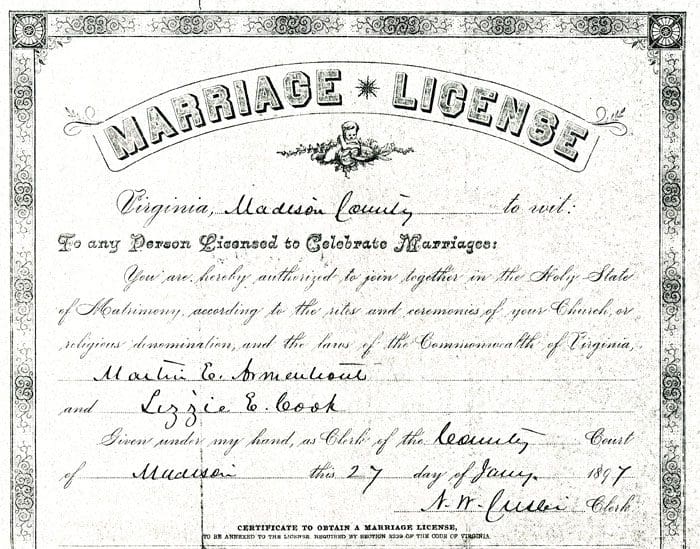 MARRIAGE LICENSE
Virginia, Madison County to wit:
To any Person Licensed to Celebrate Marriages:
You are hereby authorized to join together in the Holy State
of Matrimony, according to the rites and ceremonies of your Church, or
religious denomination, and the laws of the Commonwealth of Virginia,
Martin E. Armentrout
and Lizzie E. Cook
Given under my hand, as Clerk of the County Court
of Madison this 27 day of Jany. 1897
N. W. Clerk
CERTIFICATE TO OBTAIN A MARRIAGE LICENSE,
TO BE ANNEXED TO THE LICENSE REQUIRED BY SECTION OF THE CODE OF VIRGINIA